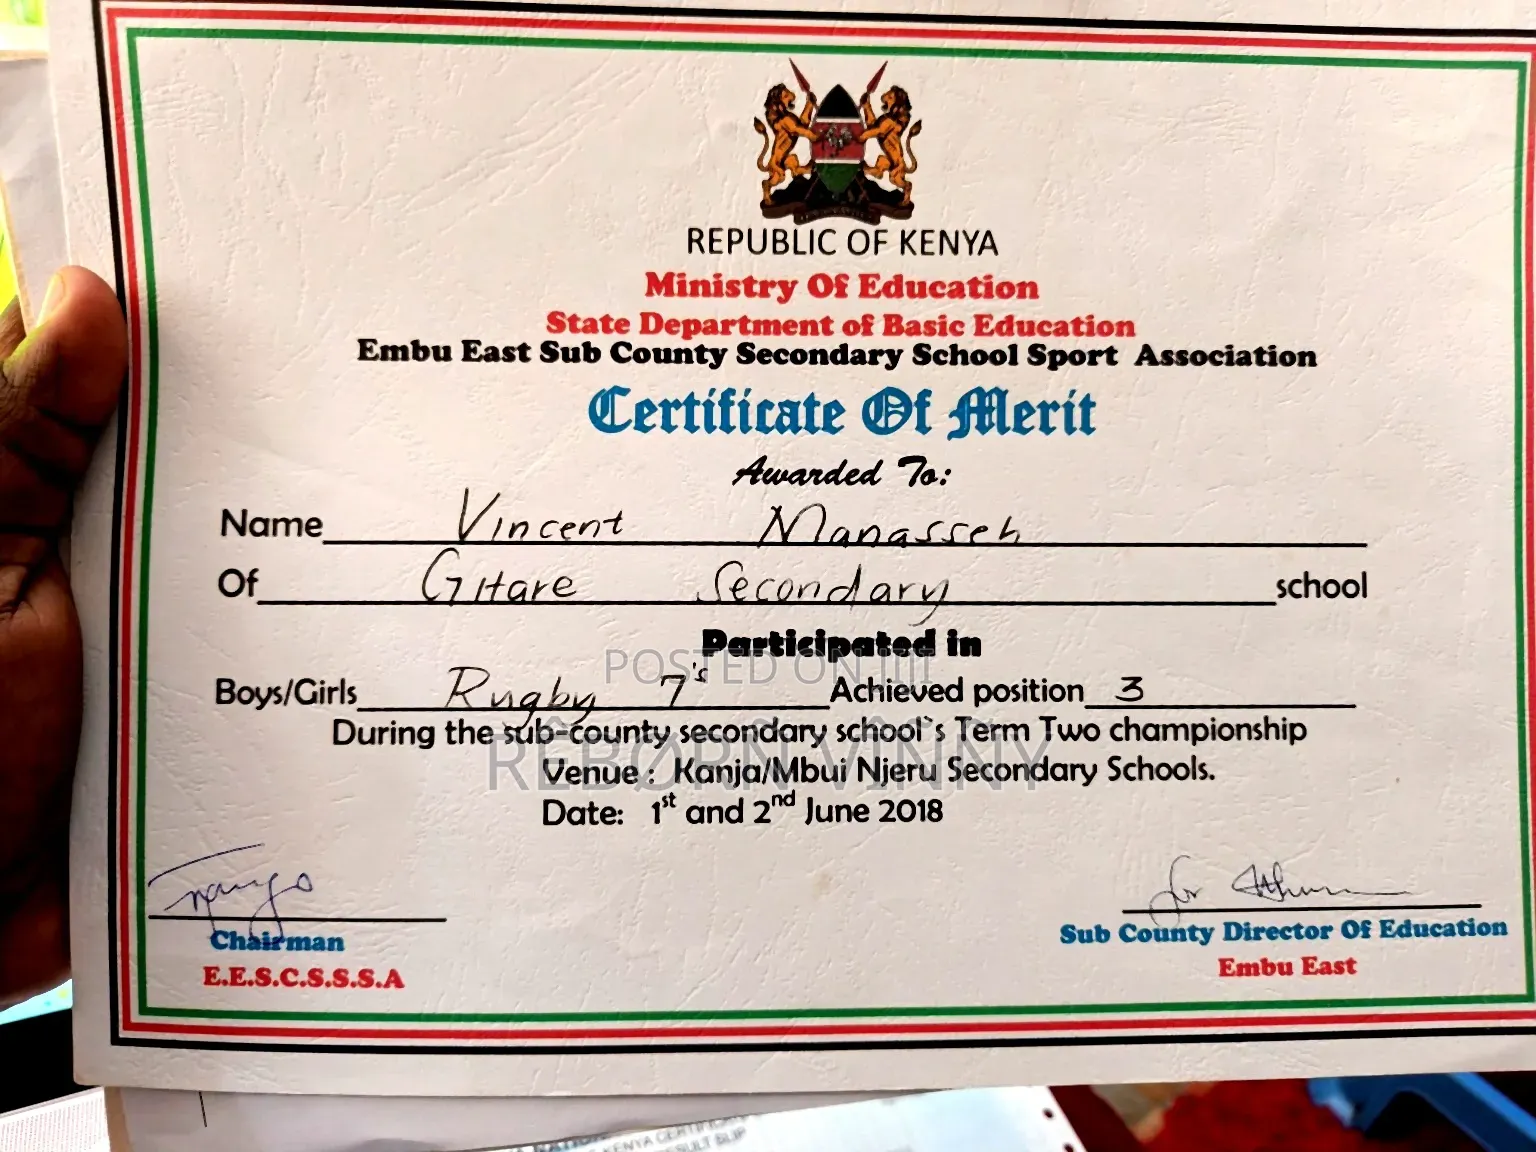 REPUBLIC OF KENYA
Ministry Of Education
State Department of Basic Education
Embu East Sub County Secondary School Sport Association
Certificate Of Merit
Awarded To:
Name Vincent Manasseh
Of Gitare Secondary school
Participated in
POSTED ON JIJI
Boys/Girls Rugby 7's Achieved position 3
During the sub-county secondary school`s Term Two championship
RÊBØRN VÎNÑY
Venue : Kanja/Mbui Njeru Secondary Schools.
Date: 1st and 2nd June 2018
for
Chairman
Sub County Director Of Education
E.E.S.C.S.S.S.A
Embu East
KENYA CERTIFIC
RESULT SLIP